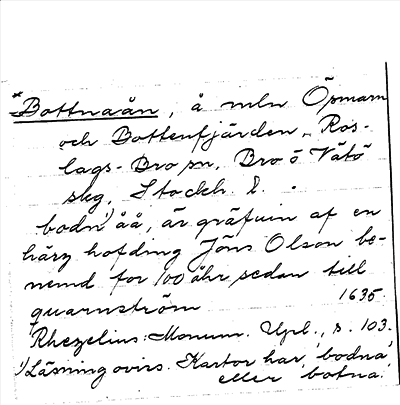 *Bottnaån, å mln Öpmarn
och Bottenfjärden, Ros-
lags-Bro sn, Bro ö Vätö
skg, Stockh. l.
bodn¹) åå, är gräfuin af en
härz hofding Jöns Olson be-
nemd för 100 åhr sedan till
quarnström 1635.
Rhezelius: Monum. Upl., s. 103.
¹) Läsning ovis. Kartor har 'bodna'
eller 'botna'.